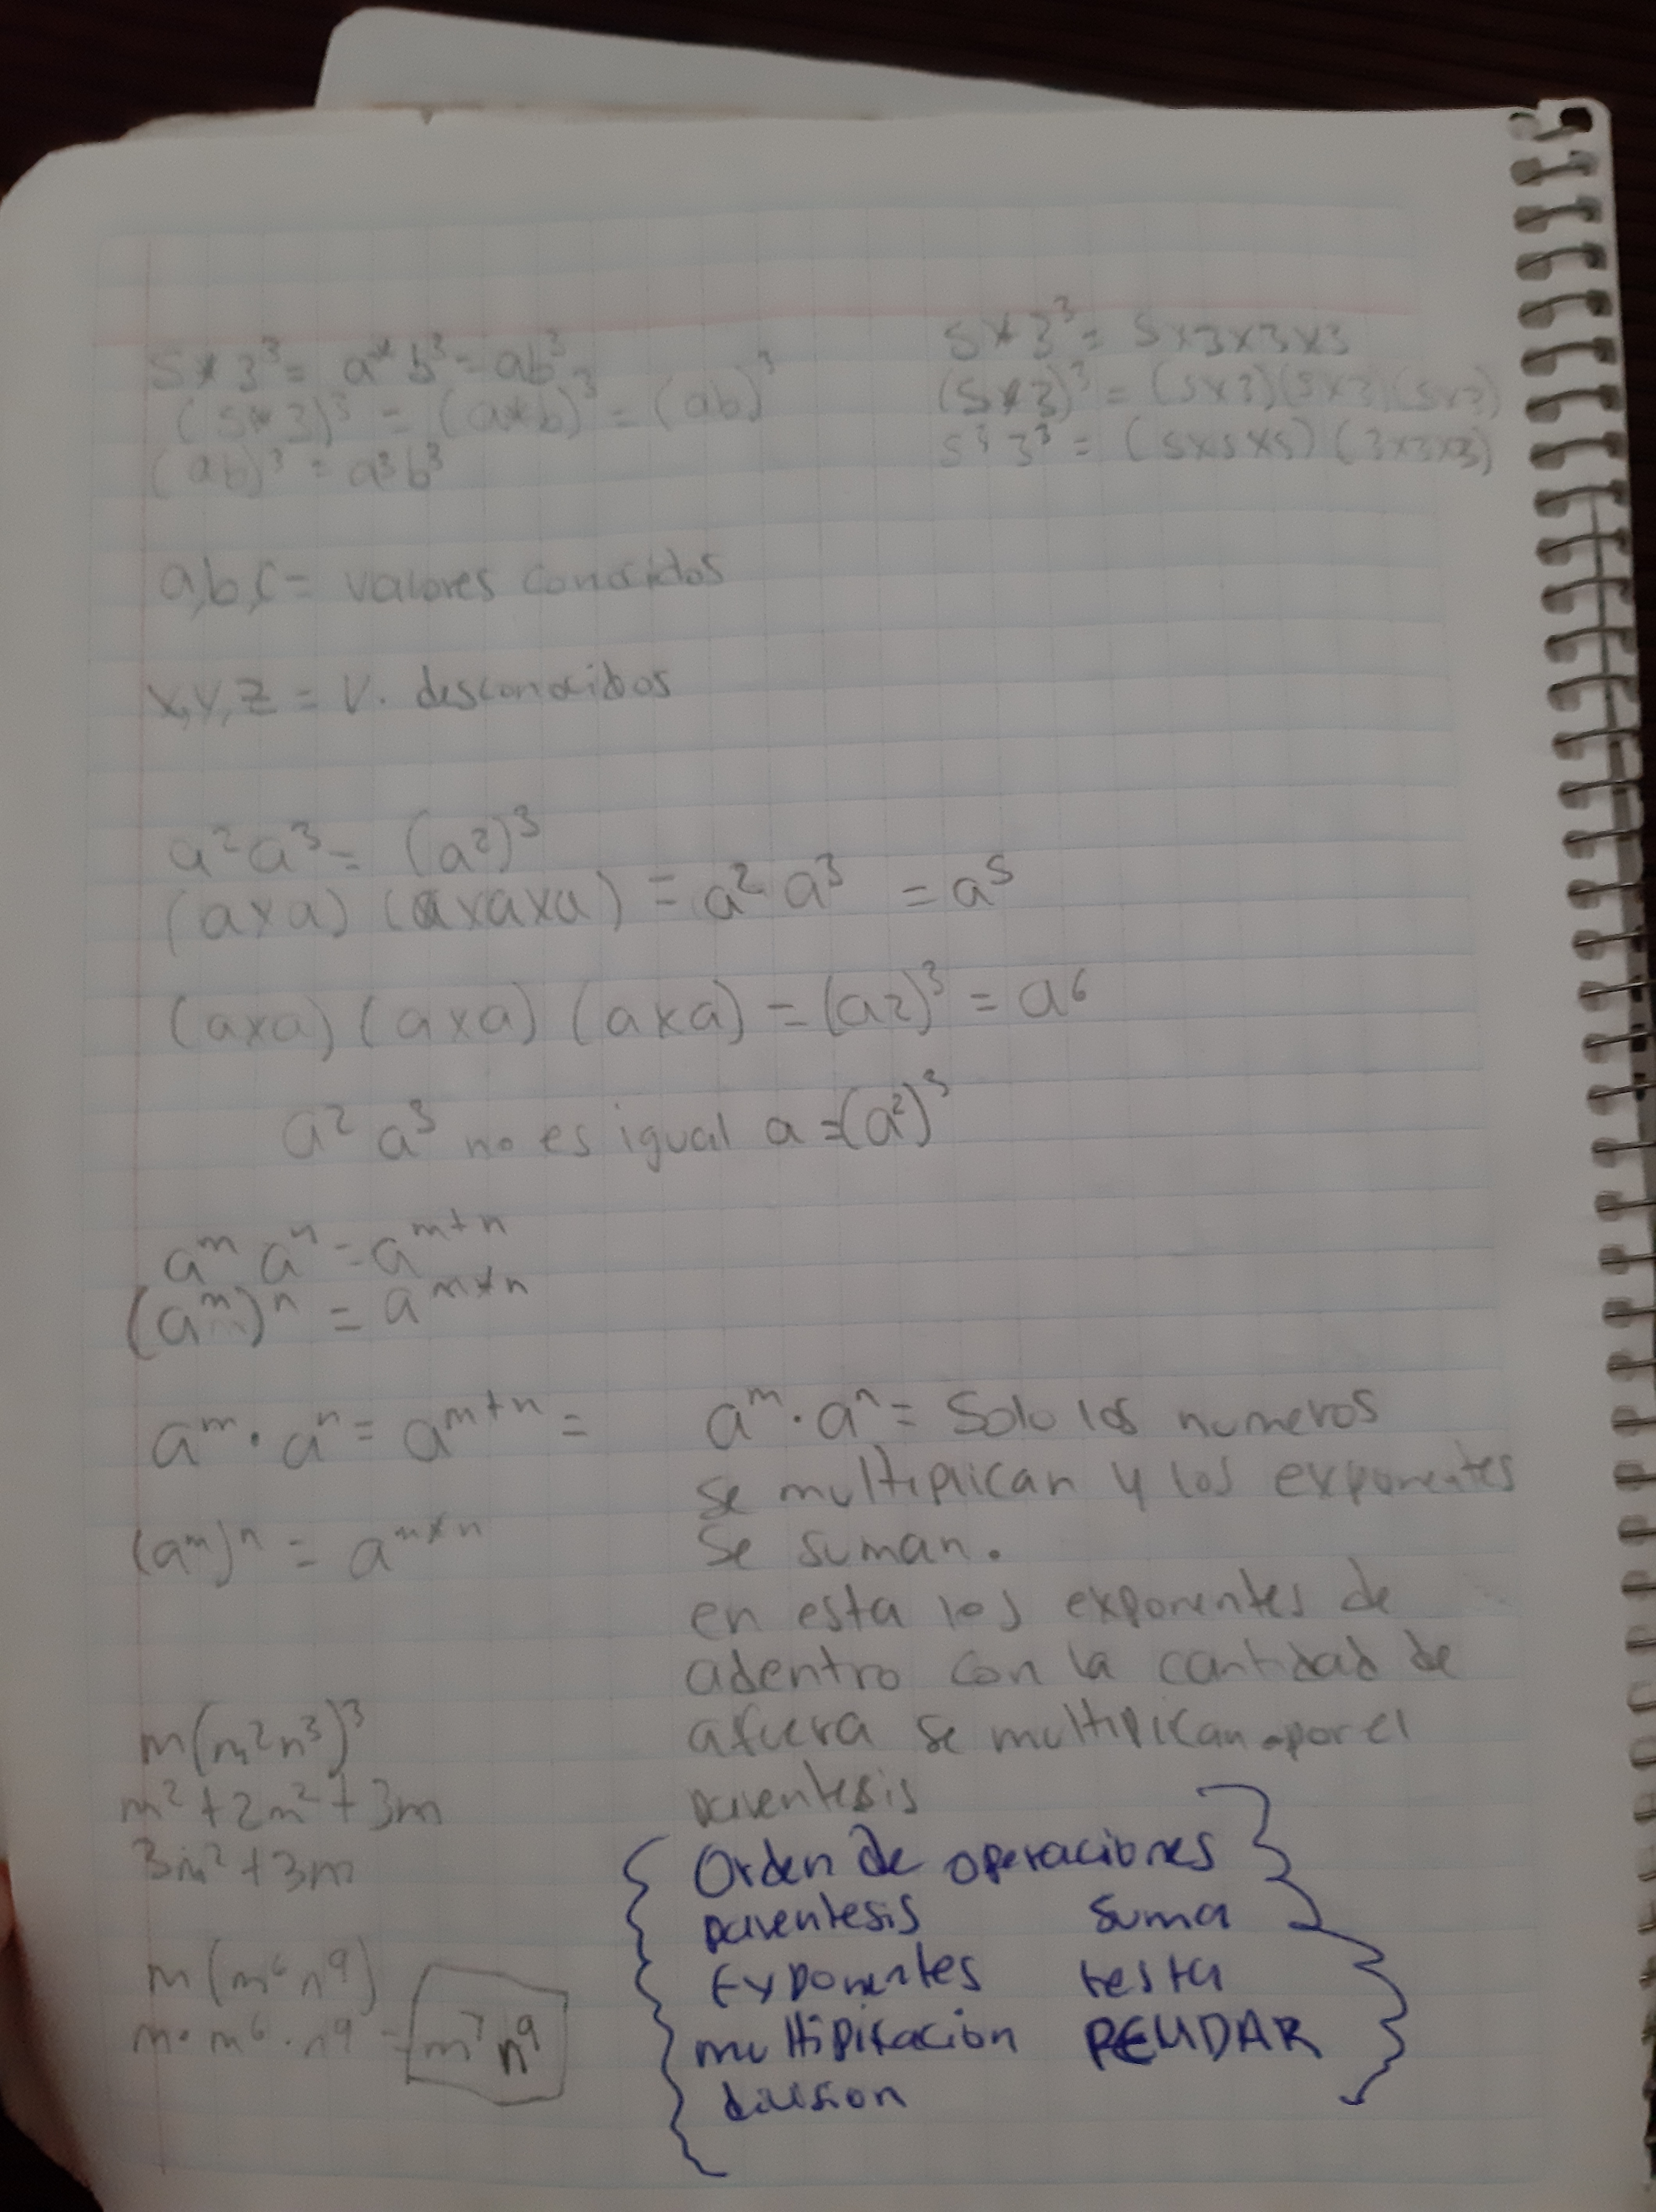 5*3³= a*b³=ab³
(5*3)³ = (a*b)³ = (ab)³
(ab)³ = a³b³
5*3³= 5x3x3x3
(5*3)³ = (5x3)(5x3)(5x3)
5³3³ = (5x5x5)(3x3x3)
a,b,c= valores conocidos
x,y,z = V. desconocidos
a²a³= (a2)³
(axa) (axaxa) = a² a³ = a⁵
(axa) (axa) (axa) = (a2)³ = a⁶
a² a³ no es igual a =(a²)³
aᵐ aⁿ = aᵐ⁺ⁿ
(aᵐ)ⁿ = aᵐ*ⁿ
aᵐ · aⁿ = aᵐ⁺ⁿ =
(aᵐ)ⁿ = aᵐ*ⁿ
aᵐ · aⁿ = Solo los numeros
se multiplican y los exponentes
se suman.
en esta los exponentes de
adentro con la cantidad de
afuera se multiplican por el
parentesis
m(m²n³)³
m² + 2m² + 3m
3m² + 3m
m(m⁶n⁹)
m·m⁶·n⁹ = m⁷n⁹
Orden de operaciones
parentesis suma
Exponentes resta
multiplicacion PEMDAR
division